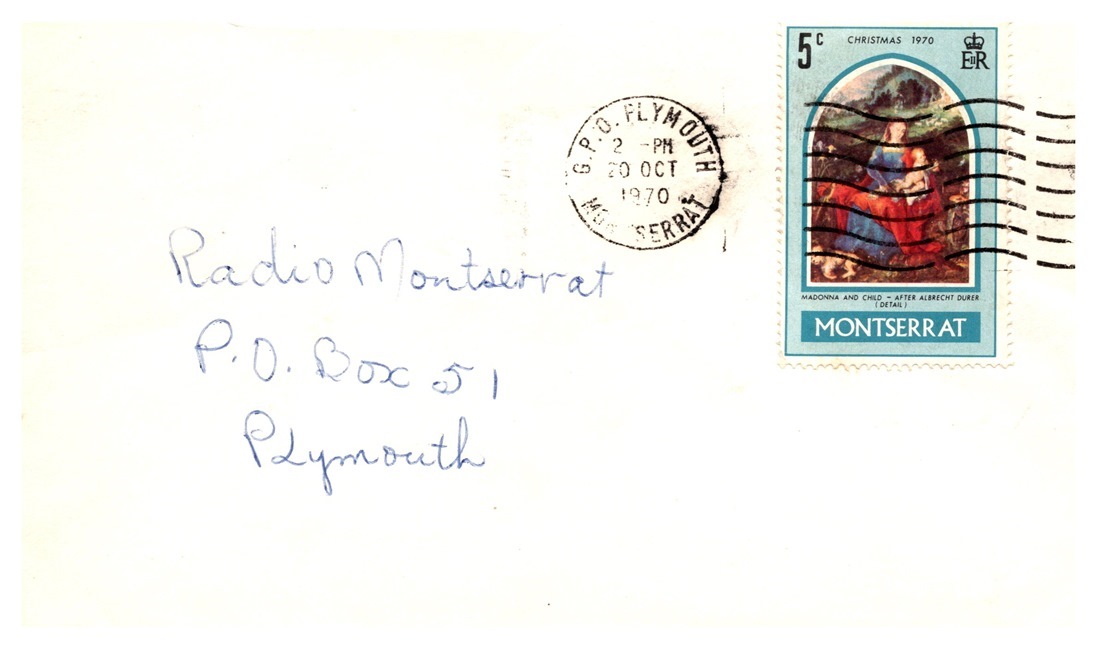 5c
CHRISTMAS 1970
EIIR
G.P.O. PLYMOUTH
2 -PM
20 OCT
1970
MONTSERRAT
Radio Montserrat
P.O. Box 51
Plymouth
MADONNA AND CHILD – AFTER ALBRECHT DURER
(DETAIL)
MONTSERRAT